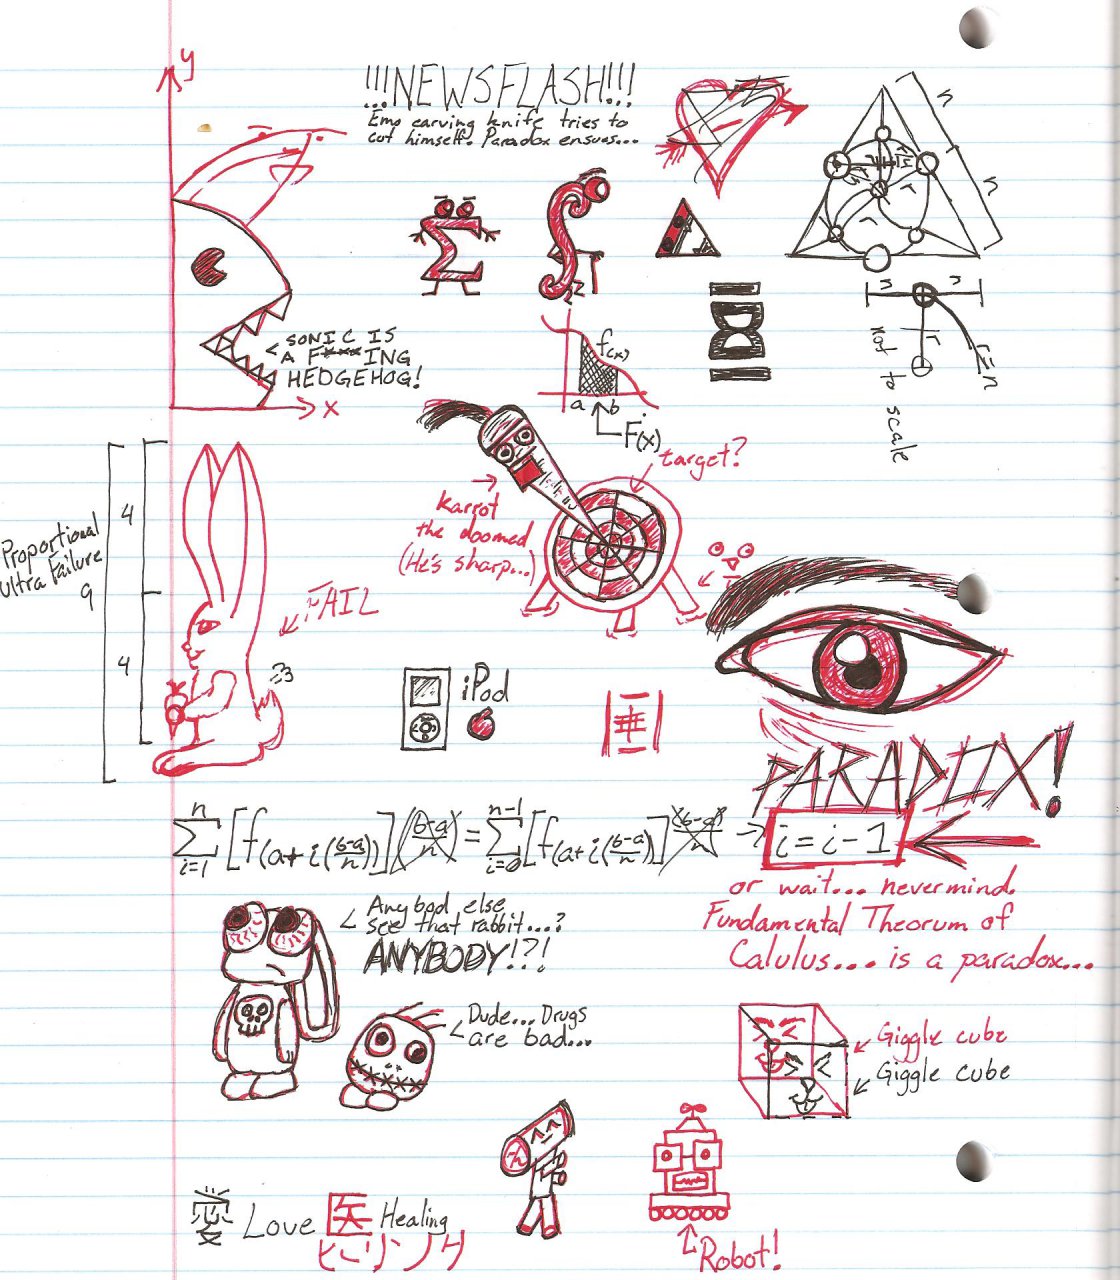 y
!!!NEWSFLASH!!!
Emo carving knife tries to
cut himself. Paradox ensues...
SONIC IS
A F***ING
HEDGEHOG!
x
f(x)
a b
F(x)
n
n
n n
r
r=n
not to scale
target?
Karrot
the doomed
(He's sharp...)
Proportional
Ultra Failure
9
4
4
FAIL
iPod
PARADOX!
n∑i=1 [f(a+i(b-a/n))](b-a/n) = n-1∑i=0 [f(a+i(b-a/n))](b-a/n) → i=i-1
or wait... nevermind.
Fundamental Theorum of
Calulus... is a paradox...
Anybod else
see that rabbit...?
ANYBODY!?!
Dude... Drugs
are bad...
Giggle cube
Giggle cube
愛 Love 医 Healing
ヒーリング
Robot!